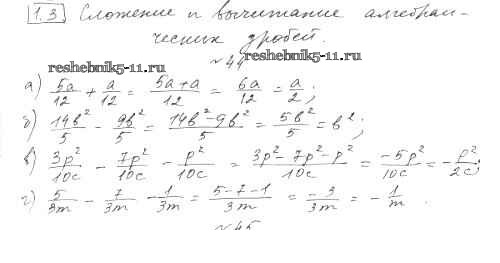 1.3 Сложение и вычитание алгебраи-
ческих дробей.
reshebnik5-11.ru
reshebnik5-11.ru
№44
а) 5a/12 + a/12 = (5a+a)/12 = 6a/12 = a/2;
б) 14b²/5 - 9b²/5 = (14b²-9b²)/5 = 5b²/5 = b²;
в) 3p²/10c - 7p²/10c - p²/10c = (3p²-7p²-p²)/10c = -5p²/10c = -p²/2c;
г) 5/3m - 7/3m - 1/3m = (5-7-1)/3m = -3/3m = -1/m.
№45